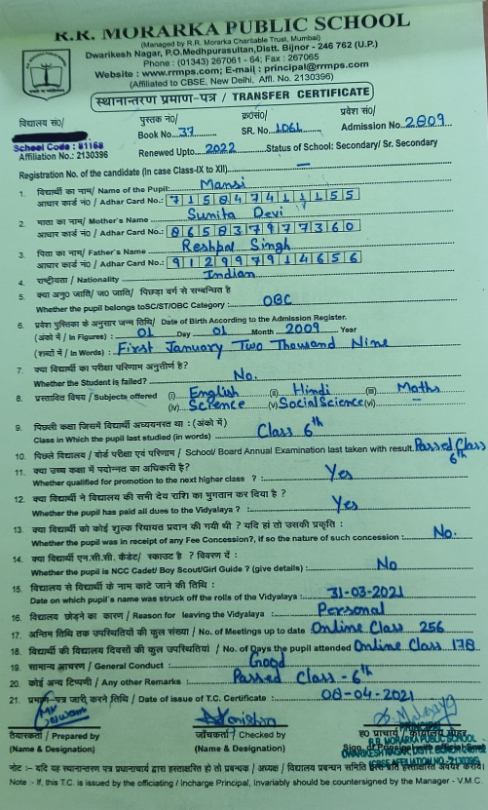 R.R. MORARKA PUBLIC SCHOOL
(Managed by R.R. Morarka Charitable Trust, Mumbai)
Dwarikesh Nagar, P.O.Medhpurasultan,Distt. Bijnor - 246 762 (U.P.)
Phone : (01343) 267061 - 64; Fax : 267065
Website : www.rrmps.com; E-mail : principal@rrmps.com
(Affiliated to CBSE, New Delhi, Affl. No. 2130396)
स्थानान्तरण प्रमाण-पत्र / TRANSFER CERTIFICATE
विद्यालय सं0/ पुस्तक नं0/ क्र0सं0/ प्रवेश सं0/
Book No. 37 SR. No. 1061 Admission No. 2809
School Code : 81168
Affiliation No.: 2130396 Renewed Upto. 2022 Status of School: Secondary/ Sr. Secondary
Registration No. of the candidate (In case Class-IX to XII) —
1. विद्यार्थी का नाम/ Name of the Pupil: Mansi
आधार कार्ड नं0 / Adhar Card No.: 715847411155
2. माता का नाम/ Mother's Name Sunita Devi
आधार कार्ड नं0 / Adhar Card No.: 865837977360
3. पिता का नाम/ Father's Name Reshpal Singh
आधार कार्ड नं0 / Adhar Card No.: 912997914656
4. राष्ट्रीयता / Nationality Indian
5. क्या अनु0 जाति/ ज0 जाति/ पिछड़ा वर्ग से सम्बन्धित है
Whether the pupil belongs toSC/ST/OBC Category : OBC
6. प्रवेश पुस्तिका के अनुसार जन्म तिथि/ Date of Birth According to the Admission Register.
(अंको में / In Figures) : 01 Day 01 Month 2009 Year
(शब्दों में / In Words) : First January Two Thousand Nine
7. क्या विद्यार्थी का परीक्षा परिणाम अनुत्तीर्ण है?
Whether the Student is failed? No.
8. प्रस्तावित विषय / Subjects offered (i) English (ii) Hindi (iii) Maths
(iv) Science (v) Social Science (vi) —
9. पिछली कक्षा जिसमें विद्यार्थी अध्ययनरत था : (अंको में)
Class in Which the pupil last studied (in words) Class 6th
10. पिछले विद्यालय / बोर्ड परीक्षा एवं परिणाम / School/ Board Annual Examination last taken with result. Passed Class 6th
11. क्या उच्च कक्षा में पदोन्नत का अधिकारी है?
Whether qualified for promotion to the next higher class ? : Yes
12. क्या विद्यार्थी ने विद्यालय की सभी देय राशि का भुगतान कर दिया है ?
Whether the pupil has paid all dues to the Vidyalaya ? : Yes
13. क्या विद्यार्थी को कोई शुल्क रियायत प्रदान की गयी थी ? यदि हां तो उसकी प्रकृति :
Whether the pupil was in receipt of any Fee Concession?, if so the nature of such concession : No.
14. क्या विद्यार्थी एन.सी.सी. कैडेट/ स्काउट है ? विवरण दें :
Whether the pupil is NCC Cadet/ Boy Scout/Girl Guide ? (give details) : No
15. विद्यालय से विद्यार्थी के नाम काटे जाने की तिथि :
Date on which pupil's name was struck off the rolls of the Vidyalaya : 31-03-2021
16. विद्यालय छोड़ने का कारण / Reason for leaving the Vidyalaya : Personal
17. अन्तिम तिथि तक उपस्थितियों की कुल संख्या / No. of Meetings up to date Online Class 256
18. विद्यार्थी की विद्यालय दिवसों की कुल उपस्थितियां / No. of Days the pupil attended Online Class 178
19. सामान्य आचरण / General Conduct : Good
20. कोई अन्य टिप्पणी / Any other Remarks : Passed Class - 6th
21. प्रमाण-पत्र जारी करने तिथि / Date of issue of T.C. Certificate : 08-04-2021
तैयारकर्ता / Prepared by जाँचकर्ता / Checked by ह0 प्राचार्य / कार्यालय मोहर
(Name & Designation) (Name & Designation)
PRINCIPAL
R.R. MORARKA PUBLIC SCHOOL
DWARIKESH NAGAR, DISTT. BIJNOR
(CBSE AFFILIATION NO. 2130396)
नोट :- यदि यह स्थानानरण पत्र प्रधानाचार्य द्वारा हस्ताक्षरित हो तो प्रबन्धक / अध्यक्ष / विद्यालय प्रबन्धन समिति
Note :- If, this T.C. is issued by the officiating / Incharge Principal, Invariably should be countersigned by the Manager - V.M.C.